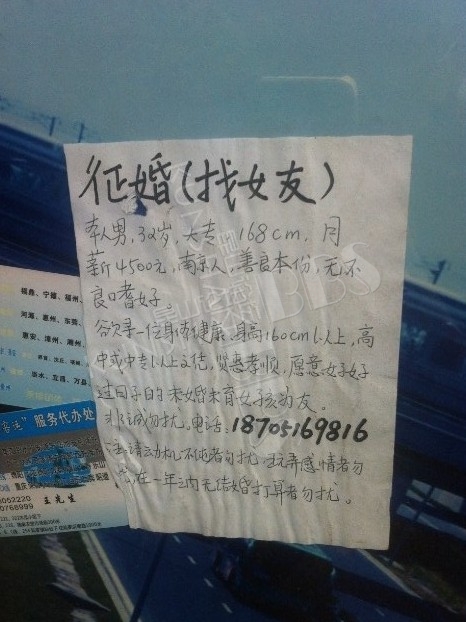 征婚(找女友)
本人男,32岁,大专,168cm,月
薪4500元,南京人,善良本份,无不
良嗜好。
欲寻一位身体健康,身高160cm以上,高
中或中专以上文化,贤惠孝顺,愿意好好
过日子的未婚未育女孩为友。
非诚勿扰,电话:18705169816
注:请动机不纯者勿扰,玩弄感情者勿
扰,在一年内无结婚打算者勿扰。
BBS
福鼎、宁德、福州、
河源、惠州、东莞、
惠安、漳州、潮州、
服务代办处
王先生
8052220
0768999